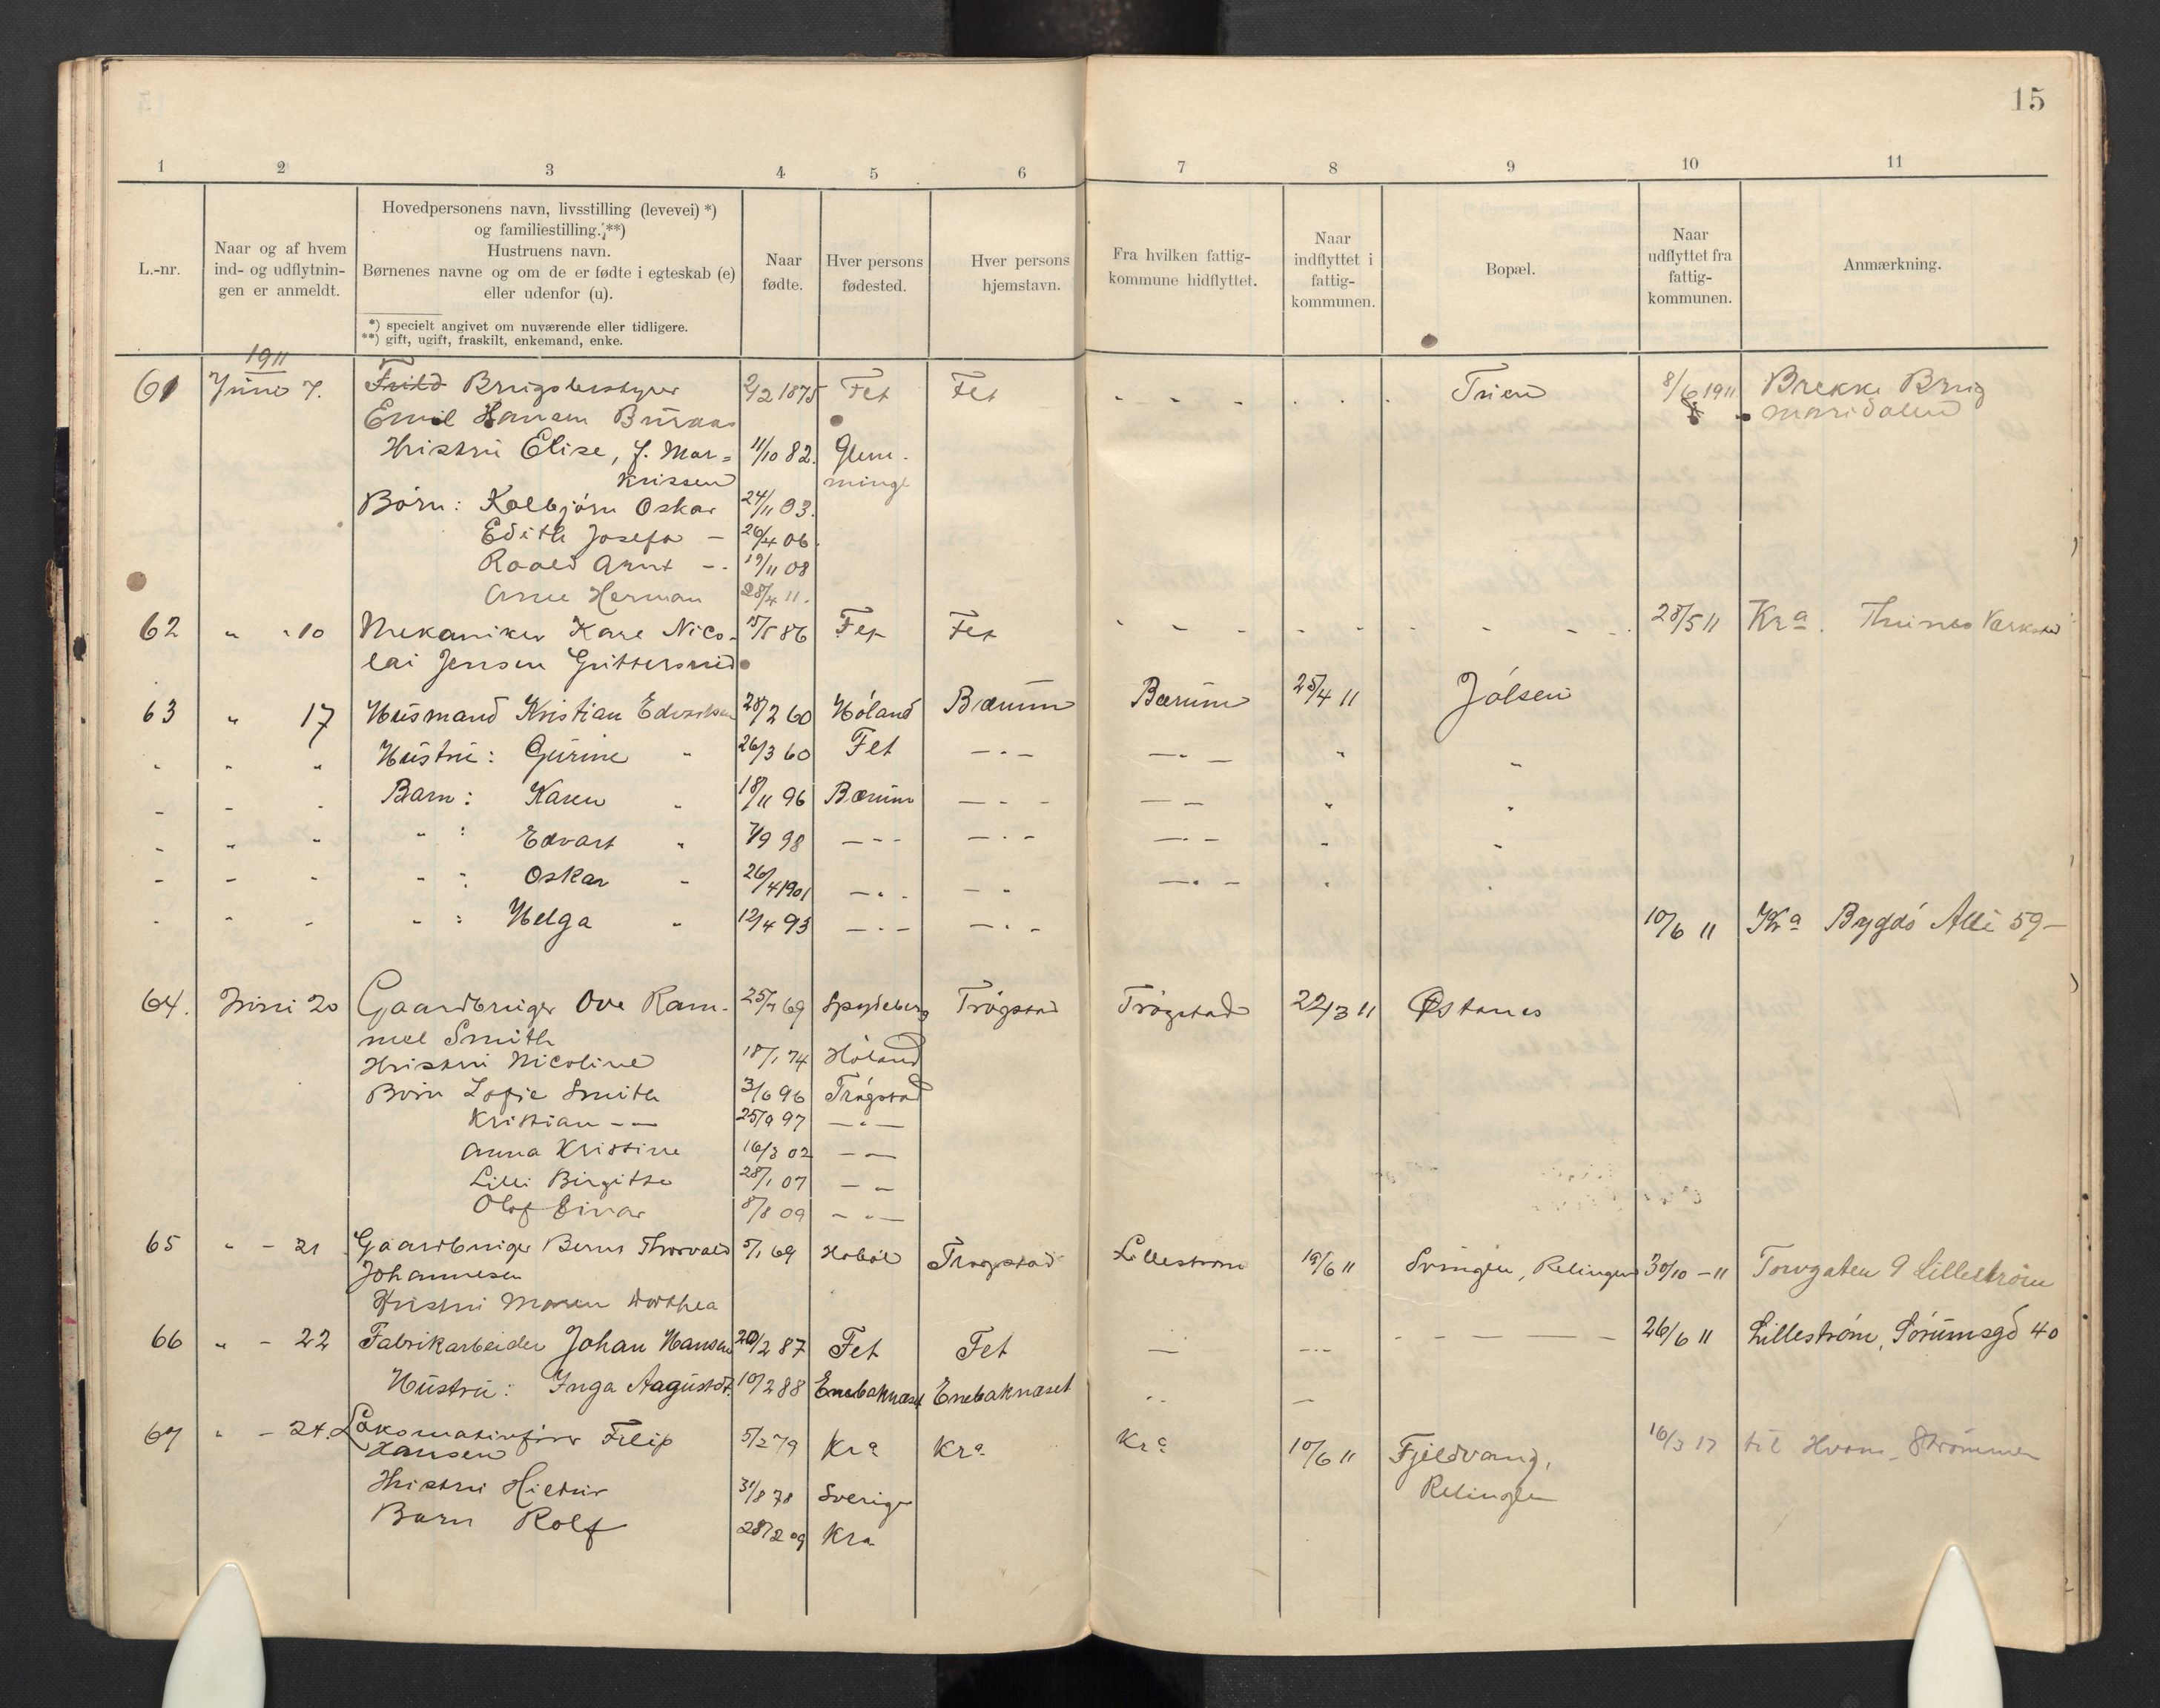 15
1 2 3 4 5 6 7 8 9 10 11
L.-nr.
Naar og af hvem
ind- og udflytnin-
gen er anmeldt.
Hovedpersonens navn, livsstilling (levevei) *)
og familiestilling. **)
Hustruens navn.
Børnenes navne og om de er fødte i egteskab (e)
eller udenfor (u).
*) specielt angivet om nuværende eller tidligere.
**) gift, ugift, fraskilt, enkemand, enke.
Naar
fødte.
Hver persons
fødested.
Hver persons
hjemstavn.
Fra hvilken fattig-
kommune hidflyttet.
Naar
indflyttet i
fattig-
kommunen.
Bopæl.
Naar
udflyttet fra
fattig-
kommunen.
Anmærkning.
1911
61 Juni 7. Brugsbestyrer 2/2 1875 Fet Fet - - - - - - 8/6 1911 Brekke Brug
Emil Hansen Buraas Maridalen
Hustru Elise, f. Mar- 11/10 82. Glem-
kussen minge
Børn: Kolbjørn Oskar 24/11 03.
Edith Josefa - 26/4 06.
Roald Arnt - 19/11 08
Arne Herman 28/4 11.
62 " " 10 Mekaniker Karl Nico- 15/5 86 Fet Fet - - - - - - - - 28/5 11 Kra. Thunes Verksted
lai Jensen Guttersrud
63 " 17 Husmand Kristian Edvardsen 28/2 60 Høland Bærum Bærum 25/4 11 Jølsen
" " " Hustru: Gurine " 26/3 60 Fet -"- -"- " "
- - - Barn: Karen " 18/11 96 Bærum -"- - - " "
- " - " : Edvart " 7/9 98 - - - -"- -"- " "
- - - " : Oskar " 26/4 1901 -"- - " -"- " "
- - - " : Helga " 12/4 93 -"- -"- 10/6 11 Kra Bygdø Alle 59-
64. Juni 20 Gaardbruger Ove Ram- 25/7 69 Spydeberg Trøgstad Trøgstad 22/3 11 Østanes
mel Smith
Hustru Nicoline 18/1 74 Høland
Børn Sofie Smith 3/6 96 Trøgstad
Kristian - - 25/9 97 -"-
Anna Kristine 16/3 02 - -
Lilli Birgitte 28/1 07 - "
Olaf Einar 8/8 09 -"-
65 " - 21 Gaardbruger Bernt Thorvald 5/1 69 Hobøl Trøgstad Lillestrøm 19/6 11 Svingen, Relingen 30/10 - 11 Torvgaten 9 Lillestrøm
Johannesen
Hustru Maren Dorthea
66 " - 22 Fabrikarbeider Johan Hansen 20/2 87 Fet Fet - -"- - - - - - 26/6 11 Lillestrøm, Sørumsgd 40
Hustru: Inga Aagustdt. 10/2 88 Enebaknæset Enebaknæset " -
67 " - 24. Lokomotivfører Filip 5/2 79 Kra Kra Kra 10/6 11 Fjeldvang, 16/3 17 til Hvam, Strømmen
Hansen
Hustru 31/8 78 Sverige Relingen
Barn Rolf 28/2 09 Kra